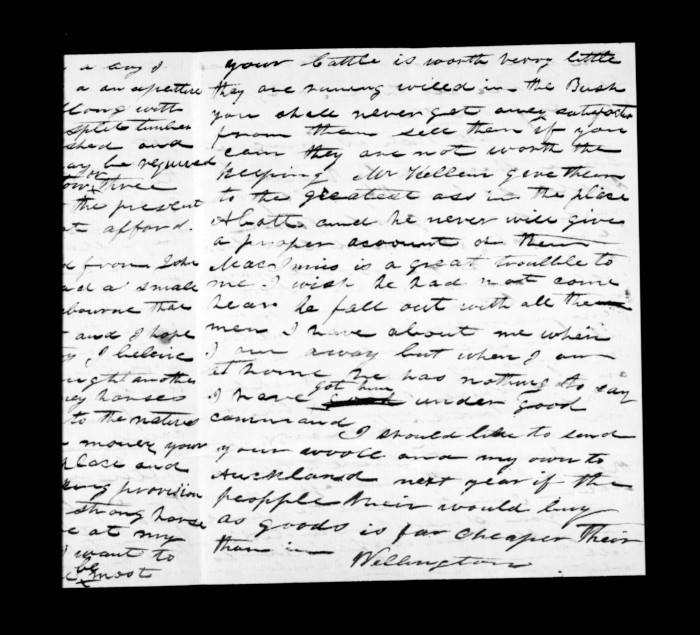 a any I
a an expective
llong with
split timber
shed and
ay be required
or
three
the present
t afford.
d from John
ad a small
bourne that
and I hope
I beleive
ught another
ey horses
to the natives
money your
place and
king provision
strong horse
e at my
I want to
be
most
your Cattle is worth verry little
they are runing willed in the Bush
you shall never get aney satisfact
from them sell them if you
can they are not worth the
keeping Mr Kellein give them
to the greatest ass in the place
Abott and he never will give
a proper account of them
MacInnis is a great troubble to
me I wish he had not come
hear he fall out with all the
men I have about me when
I am away but when I am
at home he has nothing to say
got him
I have under good
command
I should like to send
your wooll and my own to
Auckland next year if the
peopple their would buy
as goods is far cheaper their
than in
Wellington